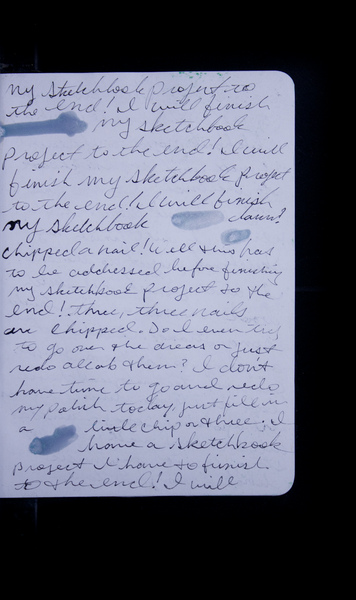 my sketchbook project to
the end! I will finish
my sketchbook
project to the end! I will
finish my sketchbook project
to the end! I will finish
my sketchbook damn!
chipped a nail! Well this has
to be addressed before finishing
my sketchbook project to the
end! three, three nails
are chipped. Do I even try
to go over the areas or just
redo all of them? I don't
have time to go and redo
my polish today, just fill in
a little chip or three, I
have a sketchbook
project I have to finish
to the end! I will